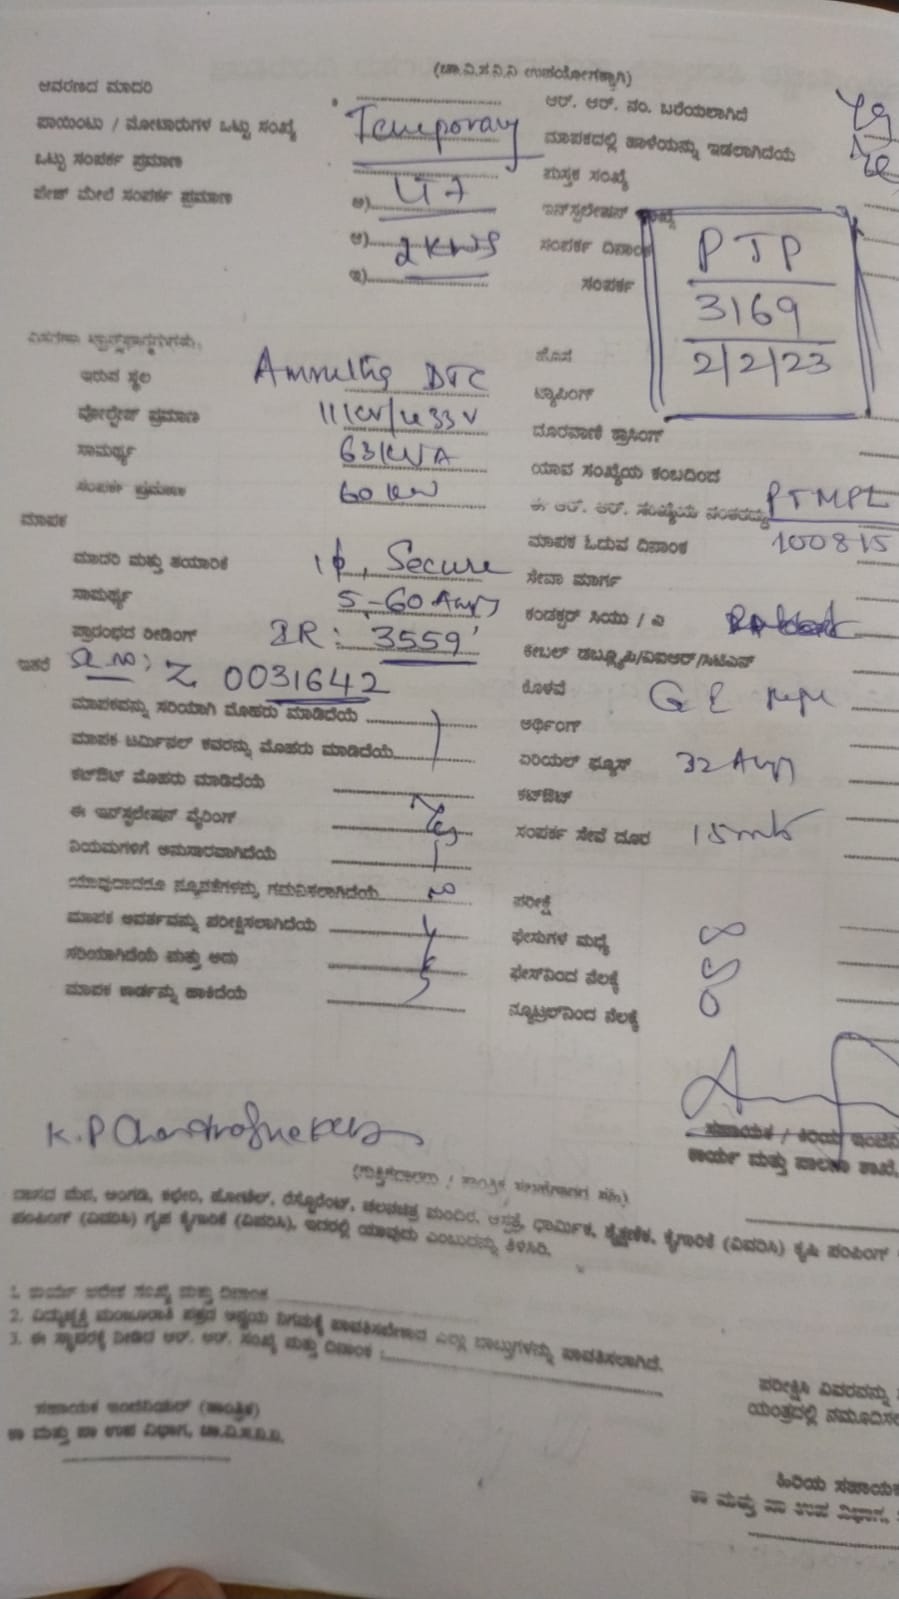 (ಚಾ.ವಿ.ಸ.ನಿ.ನಿ ಉಪಯೋಗಕ್ಕಾಗಿ)
ಆವರಣದ ಮಾದರಿ
ಆರ್. ಆರ್. ನಂ. ಬರೆಯಲಾಗಿದೆ
ಪಾಯಿಂಟು / ಮೋಟಾರುಗಳ ಒಟ್ಟು ಸಂಖ್ಯೆ Temporary
ಮಾಪಕದಲ್ಲಿ ಹಾಳೆಯನ್ನು ಇಡಲಾಗಿದೆಯೆ
ಒಟ್ಟು ಸಂಪರ್ಕ ಪ್ರಮಾಣ
ಪುಸ್ತಕ ಸಂಖ್ಯೆ
ಪೇಜ್ ಮೇಲೆ ಸಂಪರ್ಕ ಪ್ರಮಾಣ ಅ) LT7
ಇನ್‌ಸ್ಟಲೇಷನ್
ಆ) 2KWS
ಸಂಪರ್ಕ ದಿನಾಂಕ
ಇ)
ಸಂಪರ್ಕ
PTP
3169
2/2/23
ಇರುವ ಸ್ಥಳ Amrutha DTC
ಹೊಸ
ಟ್ಯಾಪಿಂಗ್
ವೋಲ್ಟೇಜ್ ಪ್ರಮಾಣ 11KV/433V
ದೂರವಾಣಿ ಕ್ರಾಸಿಂಗ್
ಸಾಮರ್ಥ್ಯ 63KVA
ಯಾವ ಸಂಖ್ಯೆಯ ಕಂಬದಿಂದ
ಸಂಪರ್ಕ ಪ್ರಮಾಣ 60 KW
ಈ ಆರ್. ಆರ್. ಸಂಖ್ಯೆಯ ನಂತರದ್ದು PTMPL
100815
ಮಾಪಕ
ಮಾಪಕ ಓದುವ ದಿನಾಂಕ
ಮಾದರಿ ಮತ್ತು ತಯಾರಿಕೆ 1ϕ, Secure
ಸೇವಾ ಮಾರ್ಗ
ಸಾಮರ್ಥ್ಯ 5-60 Amp
ಕಂಡಕ್ಟರ್ ಸಿಯು / ಎ
ಪ್ರಾರಂಭದ ರೀಡಿಂಗ್ IR: 3559
ಕೇಬಲ್ ಡಬ್ಲ್ಯೂಪಿ/ವಿಐಆರ್/ಸಿಟಿಎಸ್
ಇತರೆ Sl no: Z 0031642
ಕೊಳವೆ GI pipe
ಮಾಪಕವನ್ನು ಸರಿಯಾಗಿ ಮೊಹರು ಮಾಡಿದೆಯೆ
ಅರ್ಥಿಂಗ್
ಮಾಪಕ ಟರ್ಮಿನಲ್ ಕವರನ್ನು ಮೊಹರು ಮಾಡಿದೆಯೆ
ಏರಿಯಲ್ ಫ್ಯೂಸ್ 32 Amp
ಕಟ್‌ಔಟ್ ಮೊಹರು ಮಾಡಿದೆಯೆ
ಕಟ್‌ಔಟ್
ಈ ಇನ್‌ಸ್ಟಲೇಷನ್ ವೈರಿಂಗ್ Yes
ಸಂಪರ್ಕ ಸೇವೆ ದೂರ 15mts
ನಿಯಮಗಳಿಗೆ ಅನುಸಾರವಾಗಿದೆಯೆ
ಯಾವುದಾದರೂ ನ್ಯೂನತೆಗಳನ್ನು ಗಮನಿಸಲಾಗಿದೆಯೆ no
ಪರೀಕ್ಷೆ
ಮಾಪಕ ಆವರ್ತವನ್ನು ಪರೀಕ್ಷಿಸಲಾಗಿದೆಯೆ
ಫೇಸುಗಳ ಮಧ್ಯೆ ∞
ಸರಿಯಾಗಿದೆಯೆ ಮತ್ತು ಅದು
ಫೇಸ್‌ನಿಂದ ನೆಲಕ್ಕೆ ∞
ಮಾಪಕ ಕಾರ್ಡನ್ನು ಹಾಕಿದೆಯೆ
ನ್ಯೂಟ್ರಲ್‌ನಿಂದ ನೆಲಕ್ಕೆ 0
ಸಹಾಯಕ / ಕಿರಿಯ
ಕಾರ್ಯ ಮತ್ತು ಪಾಲನಾ ಶಾಖೆ,
ವಾಸದ ಮನೆ, ಅಂಗಡಿ, ಕಛೇರಿ, ಹೋಟೆಲ್, ರೆಸ್ಟೋರೆಂಟ್, ಚಲನಚಿತ್ರ ಮಂದಿರ, ಆಸ್ಪತ್ರೆ, ಧಾರ್ಮಿಕ, ಶೈಕ್ಷಣಿಕ, ಕೈಗಾರಿಕೆ (ವಿವರಿಸಿ) ಕೃಷಿ ಪಂಪಿಂಗ್
ಪಂಪಿಂಗ್ (ವಿವರಿಸಿ) ಗೃಹ ಕೈಗಾರಿಕೆ (ವಿವರಿಸಿ), ಇದರಲ್ಲಿ ಯಾವುದು ಎಂಬುದನ್ನು ತಿಳಿಸಿರಿ.
1. ಕಾರ್ಯ ಆದೇಶ ಸಂಖ್ಯೆ ಮತ್ತು ದಿನಾಂಕ
2. ವಿದ್ಯುಚ್ಛಕ್ತಿ ಮಂಜೂರಾತಿ ಪತ್ರದ ಅನ್ವಯ ನಿಗಮಕ್ಕೆ ಪಾವತಿಸಬೇಕಾದ ಎಲ್ಲಾ ಬಾಬ್ತುಗಳನ್ನು ಪಾವತಿಸಲಾಗಿದೆ.
3. ಈ ಸ್ಥಾವರಕ್ಕೆ ನೀಡಿದ ಆರ್. ಆರ್. ಸಂಖ್ಯೆ ಮತ್ತು ದಿನಾಂಕ :
ಪರೀಕ್ಷಿಸಿ ವಿವರವನ್ನು
ಸಹಾಯಕ ಇಂಜಿನಿಯರ್ (ತಾಂತ್ರಿಕ)
ಕಾ ಮತ್ತು ಪಾ ಉಪ ವಿಭಾಗ, ಚಾ.ವಿ.ಸ.ನಿ.ನಿ.
ಹಿರಿಯ ಸಹಾಯಕ
ಕಾ ಮತ್ತು ಪಾ ಉಪ ವಿಭಾಗ,